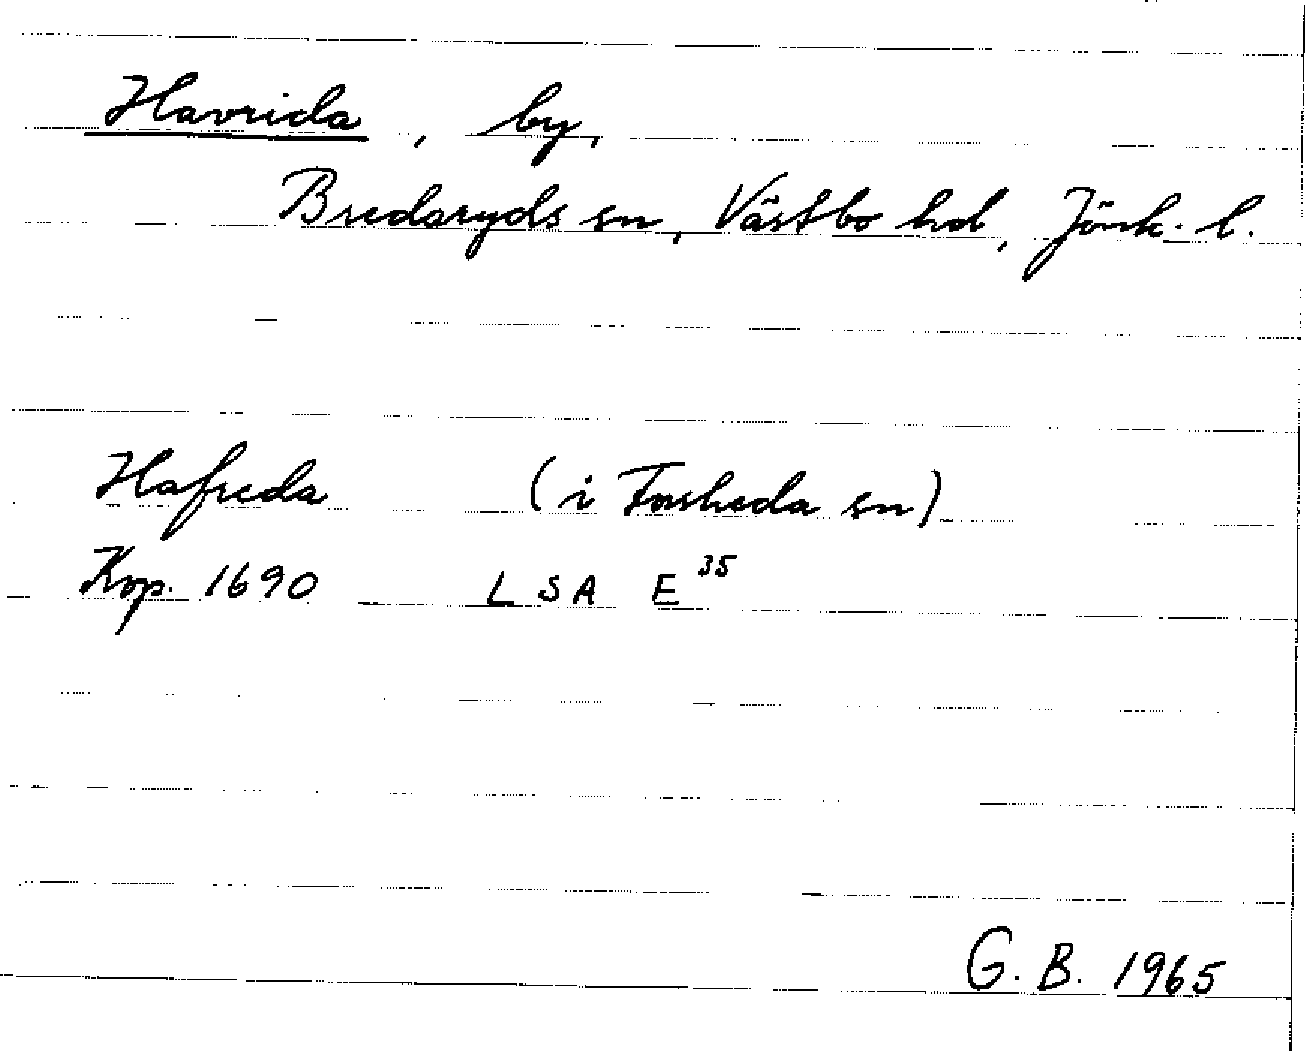 Havrida, by,
Bredaryds sn, Västbo hd, Jönk. l.
Hafreda (i Forsheda sn)
Kop. 1690 LSA E³⁵
G. B. 1965